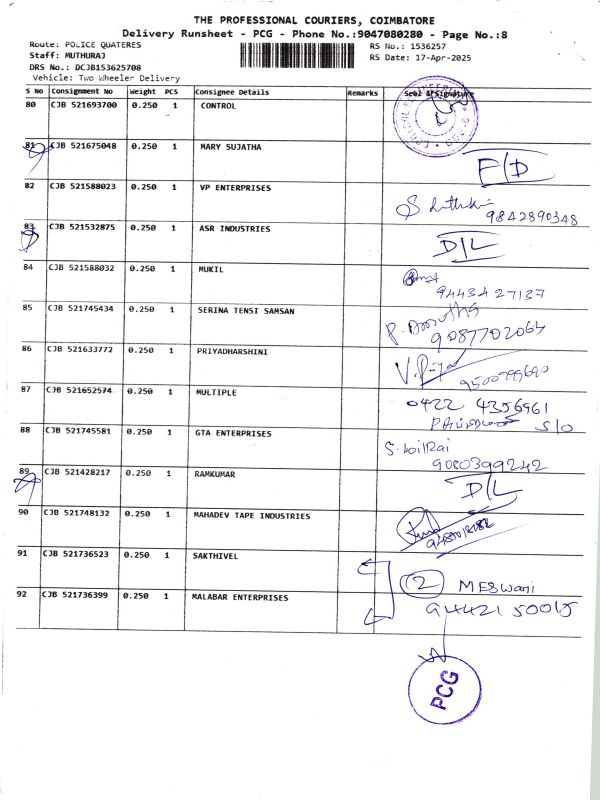 THE PROFESSIONAL COURIERS, COIMBATORE
Delivery Runsheet - PCG - Phone No.:9047080280 - Page No.:8
Route: POLICE QUATERES
RS No.: 1536257
Staff: MUTHURAJ
RS Date: 17-Apr-2025
DRS No.: DCJB153625708
Vehicle: Two Wheeler Delivery
S No Consignment No Weight PCS Consignee Details Remarks Seal & Signature
80 CJB 521693700 0.250 1 CONTROL
81 CJB 521675048 0.250 1 MARY SUJATHA
F/D
82 CJB 521588023 0.250 1 VP ENTERPRISES
9842890348
83 CJB 521532875 0.250 1 ASR INDUSTRIES
D/L
84 CJB 521588032 0.250 1 MUKIL
9443427137
85 CJB 521745434 0.250 1 SERINA TENSI SAMSAN
9087702064
86 CJB 521633772 0.250 1 PRIYADHARSHINI
87 CJB 521652574 0.250 1 MULTIPLE
0422 4356961
S/O
88 CJB 521745581 0.250 1 GTA ENTERPRISES
9080399242
89 CJB 521428217 0.250 1 RAMKUMAR
D/L
90 CJB 521748132 0.250 1 MAHADEV TAPE INDUSTRIES
91 CJB 521736523 0.250 1 SAKTHIVEL
2
92 CJB 521736399 0.250 1 MALABAR ENTERPRISES
PCG